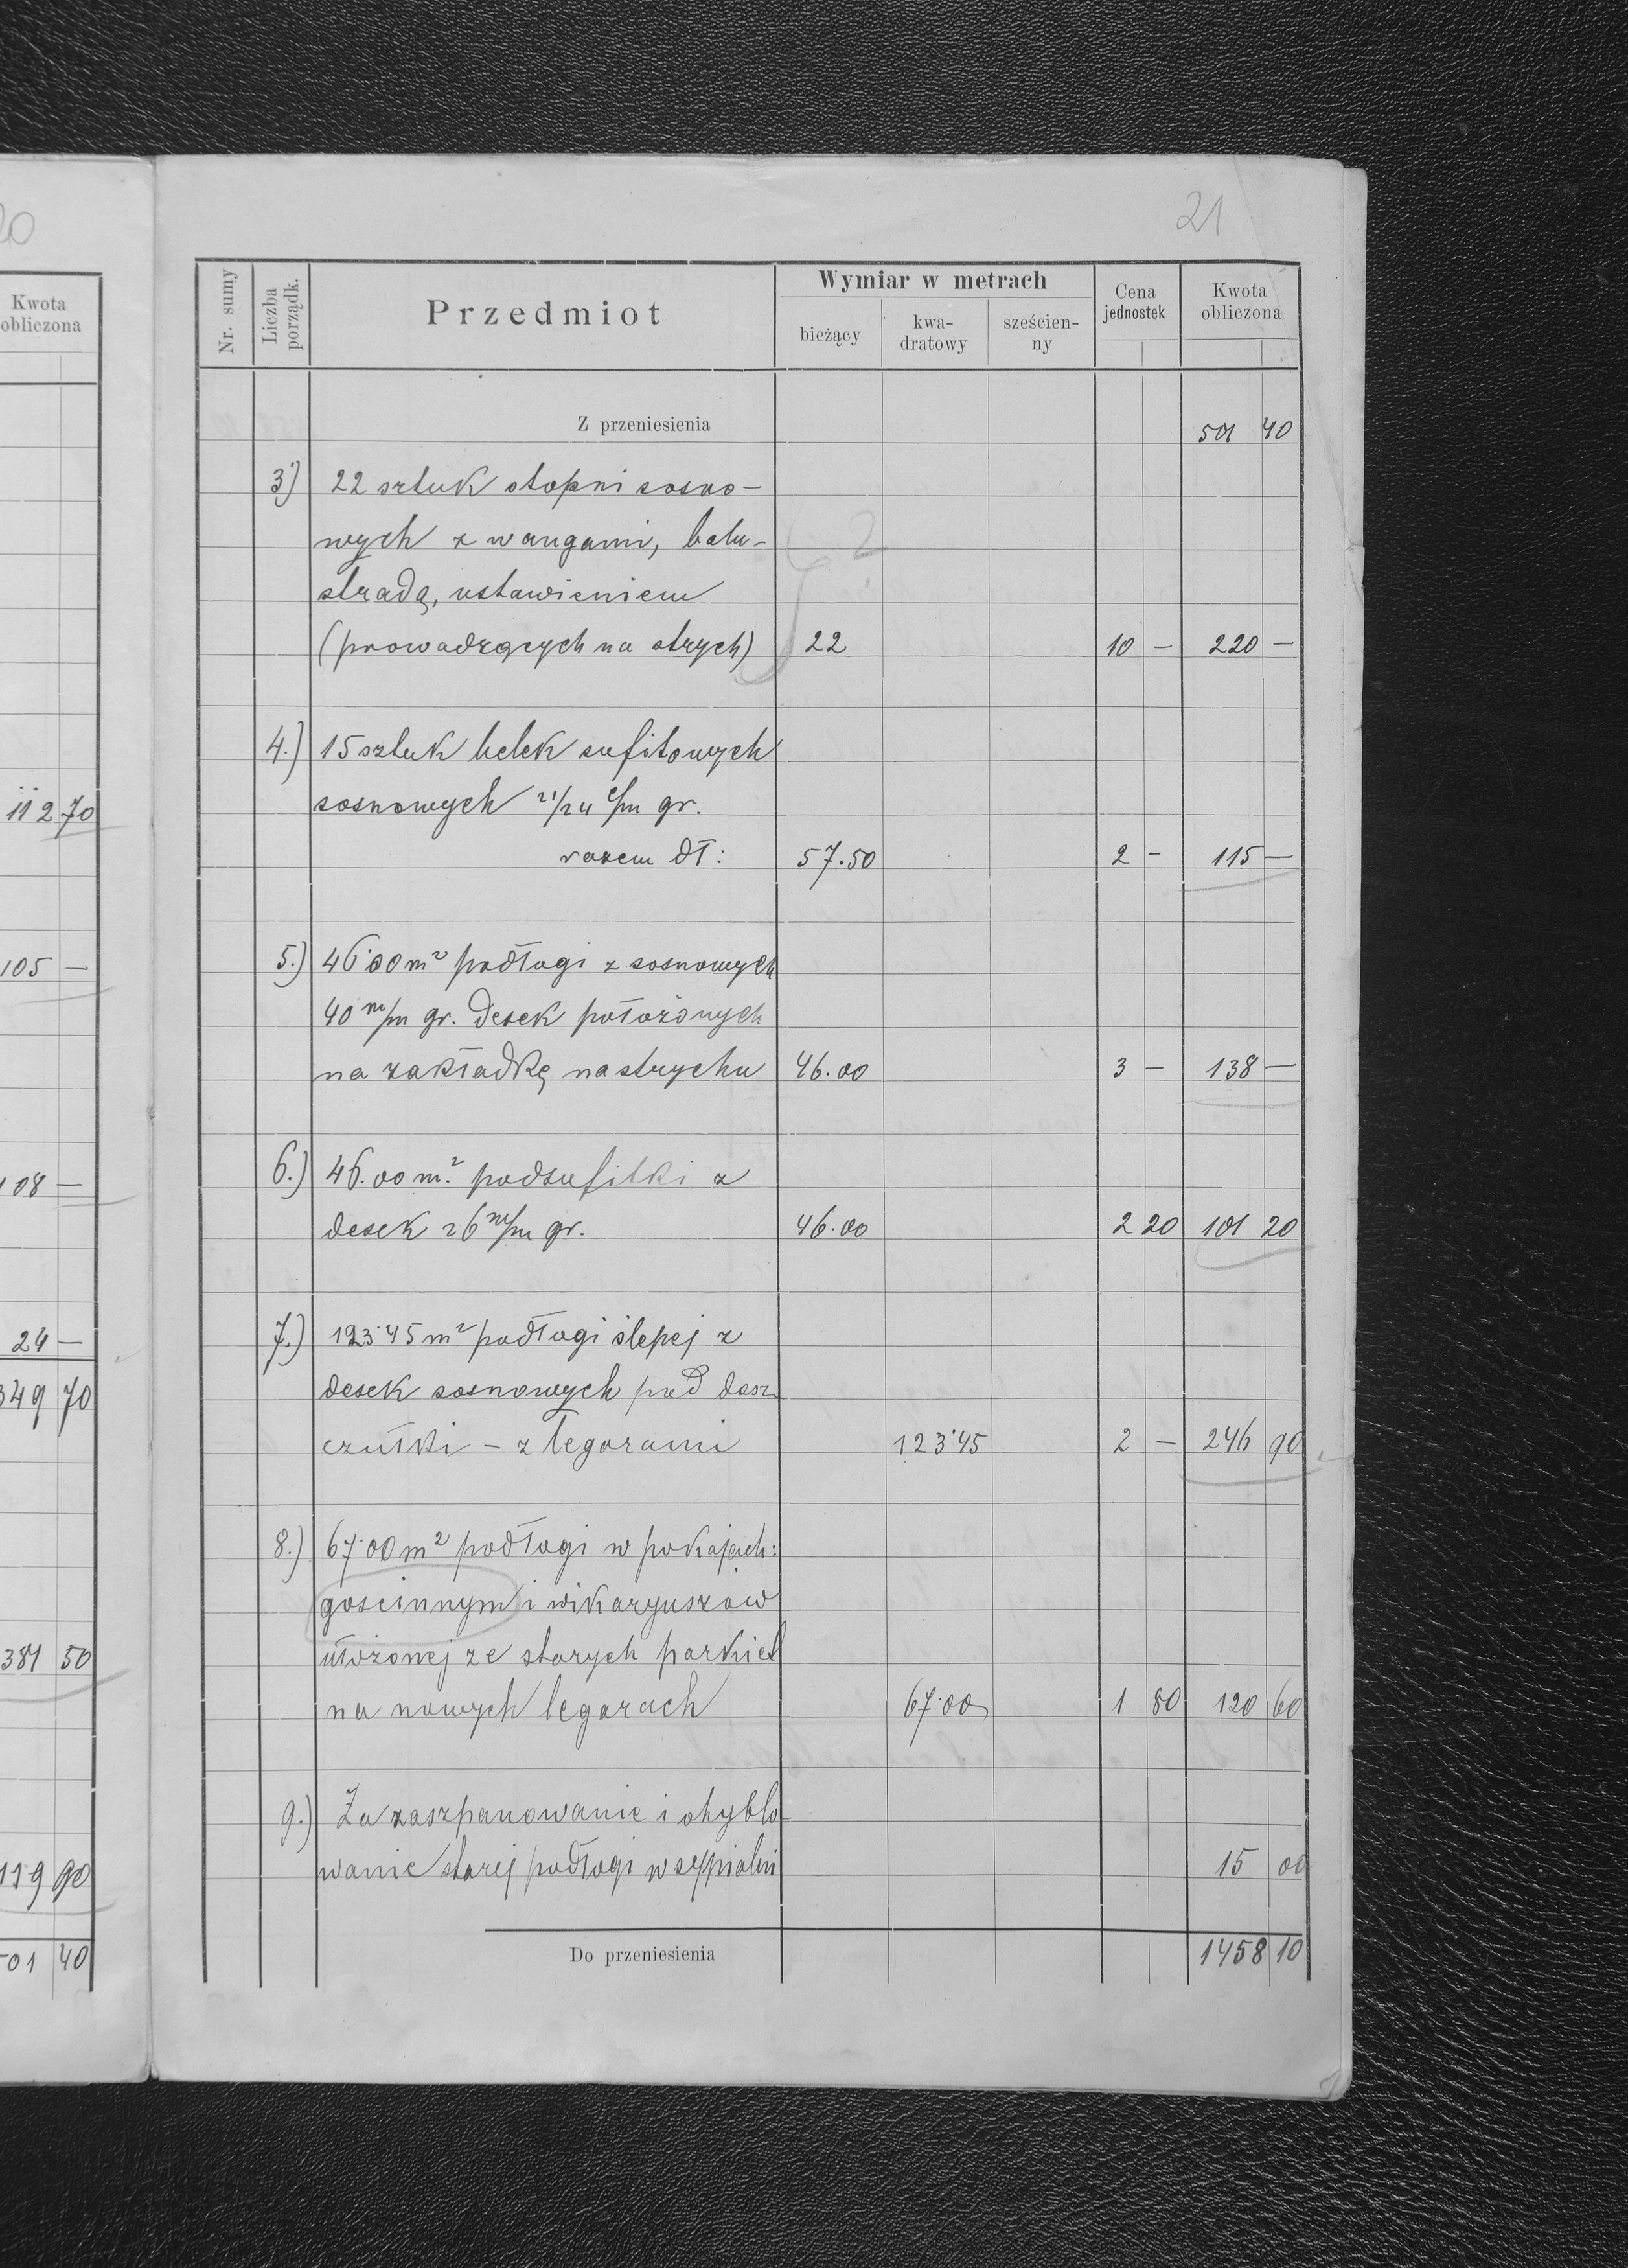 20
Kwota
obliczona
112 70
105 —
108 —
24 —
349 70
381 50
119 90
501 40
21
Nr. sumy
Liczba
porządk.
Przedmiot
Wymiar w metrach
bieżący
kwa-
dratowy
sześcien-
ny
Cena
jednostek
Kwota
obliczona
Z przeniesienia 501 40
3.) 22 sztuk stopni sosno-
wych z wangami, balu-
stradą, ustawieniem
(prowadzących na strych) 22 10 — 220 —
2
4.) 15 sztuk belek sufitowych
sosnowych 21/24 c/m gr.
razem dł: 57.50 2 — 115 —
5.) 46.00 m² podłogi z sosnowych
40 m/m gr. desek położonych
na zakładkę na strychu 46.00 3 — 138 —
6.) 46.00 m.² podsufitki z
desek 26 m/m gr. 46.00 2 20 101 20
7.) 123.45 m² podłogi ślepej z
desek sosnowych pod desz-
czułki – z legarami 123.45 2 — 246 90
8.) 67.00 m² podłogi w pokajach:
goscinnym i wikaryuszów
ułożonej ze starych parkiet
na nowych legarach 67.00 1 80 120 60
9.) Za zaszpanowanie i ohyblo-
wanie starej podłogi w sypialni 15 00
Do przeniesienia 1458 10